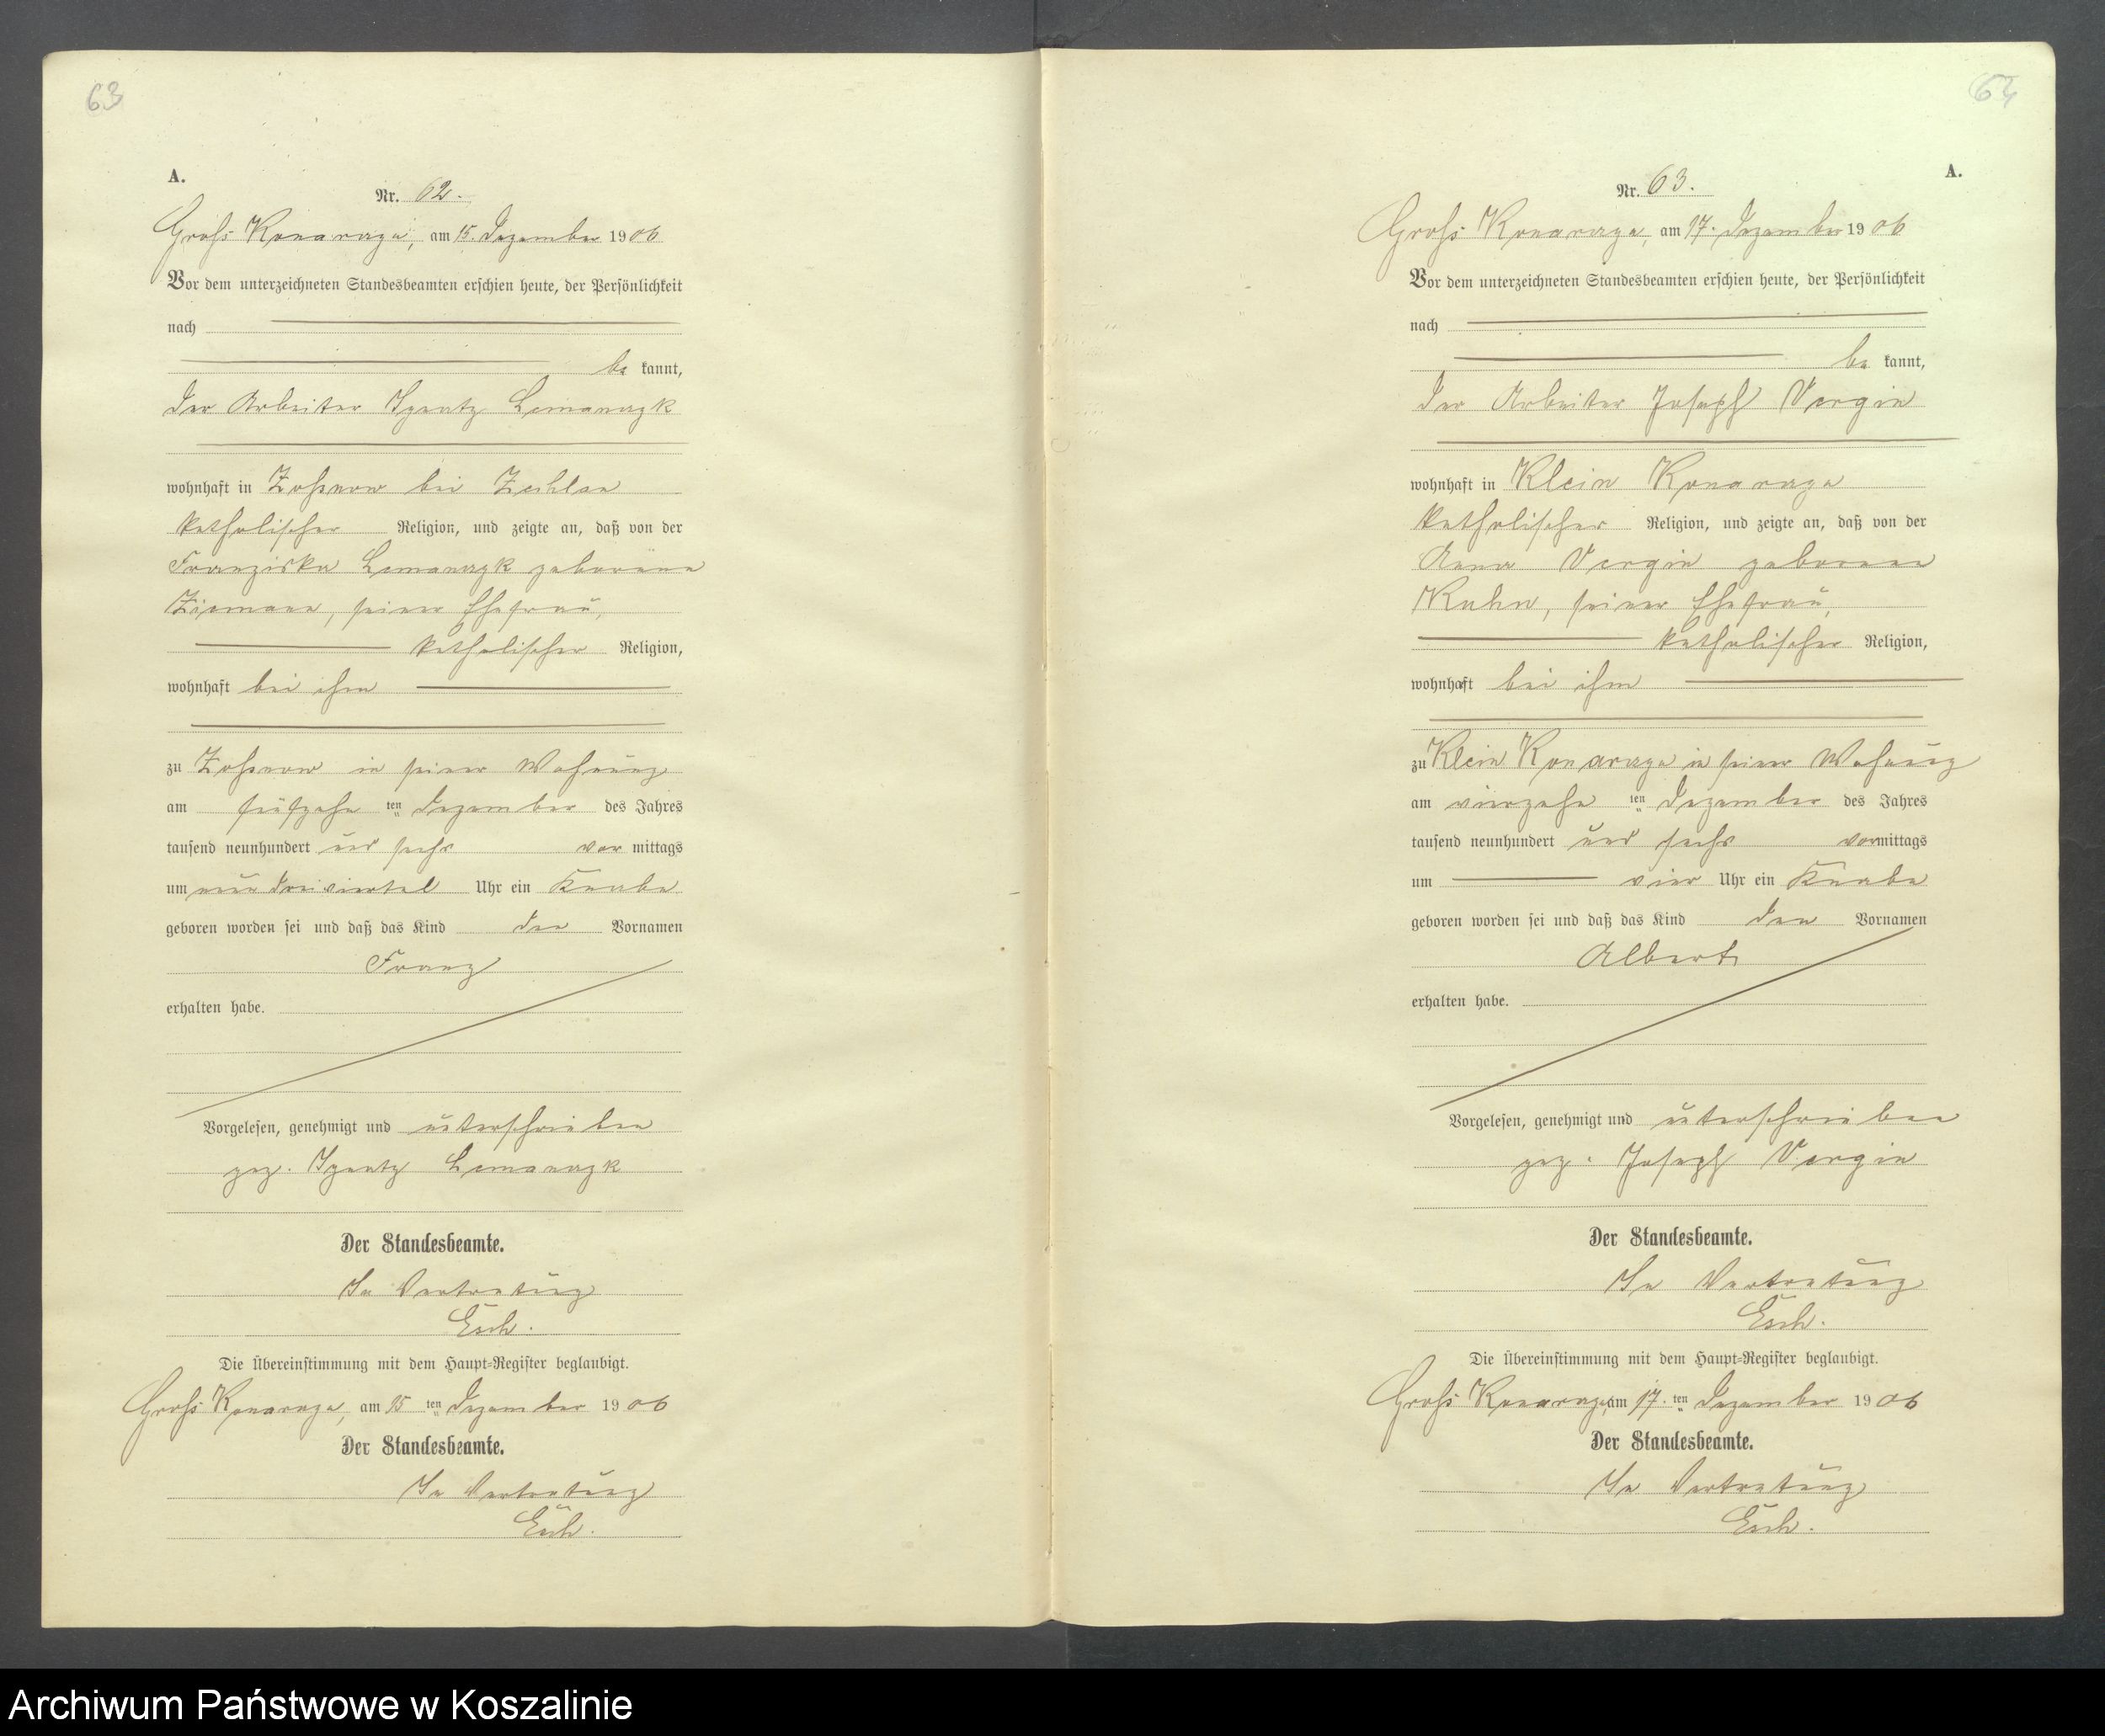 63
A.
Nr. 62.
Groß Konarczyn, am 15. Dezember 1906
Vor dem unterzeichneten Standesbeamten erschien heute, der Persönlichkeit
nach
be kannt,
der Arbeiter Ignatz Lemanczyk
wohnhaft in bei
katholischer Religion, und zeigte an, daß von der
Franziska Lemanczyk geborene
Ziemann, seiner Ehefrau,
katholischer Religion,
wohnhaft bei ihm
zu in seiner Wohnung
am fünfzehn ten Dezember des Jahres
tausend neunhundert und sechs vor mittags
um neun dreiviertel Uhr ein Knabe
geboren worden sei und daß das Kind den Vornamen
Franz
erhalten habe.
Vorgelesen, genehmigt und unterschrieben
gez. Ignatz Lemanczyk
Der Standesbeamte.
In Vertretung
Esch.
Die Übereinstimmung mit dem Haupt-Register beglaubigt.
Groß Konarczyn, am 15 ten Dezember 1906
Der Standesbeamte.
In Vertretung
Esch.
64
A.
Nr. 63.
Groß Konarczyn, am 17. Dezember 1906
Vor dem unterzeichneten Standesbeamten erschien heute, der Persönlichkeit
nach
be kannt,
der Arbeiter Joseph Vergin
wohnhaft in Klein Konarczyn
katholischer Religion, und zeigte an, daß von der
Anna Vergin geborene
Kuhn, seiner Ehefrau,
katholischer Religion,
wohnhaft bei ihm
zu Klein Konarczyn in seiner Wohnung
am vierzehn ten Dezember des Jahres
tausend neunhundert und sechs vormittags
um vier Uhr ein Knabe
geboren worden sei und daß das Kind den Vornamen
Albert
erhalten habe.
Vorgelesen, genehmigt und unterschrieben
gez. Joseph Vergin
Der Standesbeamte.
In Vertretung
Esch.
Die Übereinstimmung mit dem Haupt-Register beglaubigt.
Groß Konarczyn am 17. ten Dezember 1906
Der Standesbeamte.
In Vertretung
Esch.
Archiwum Państwowe w Koszalinie